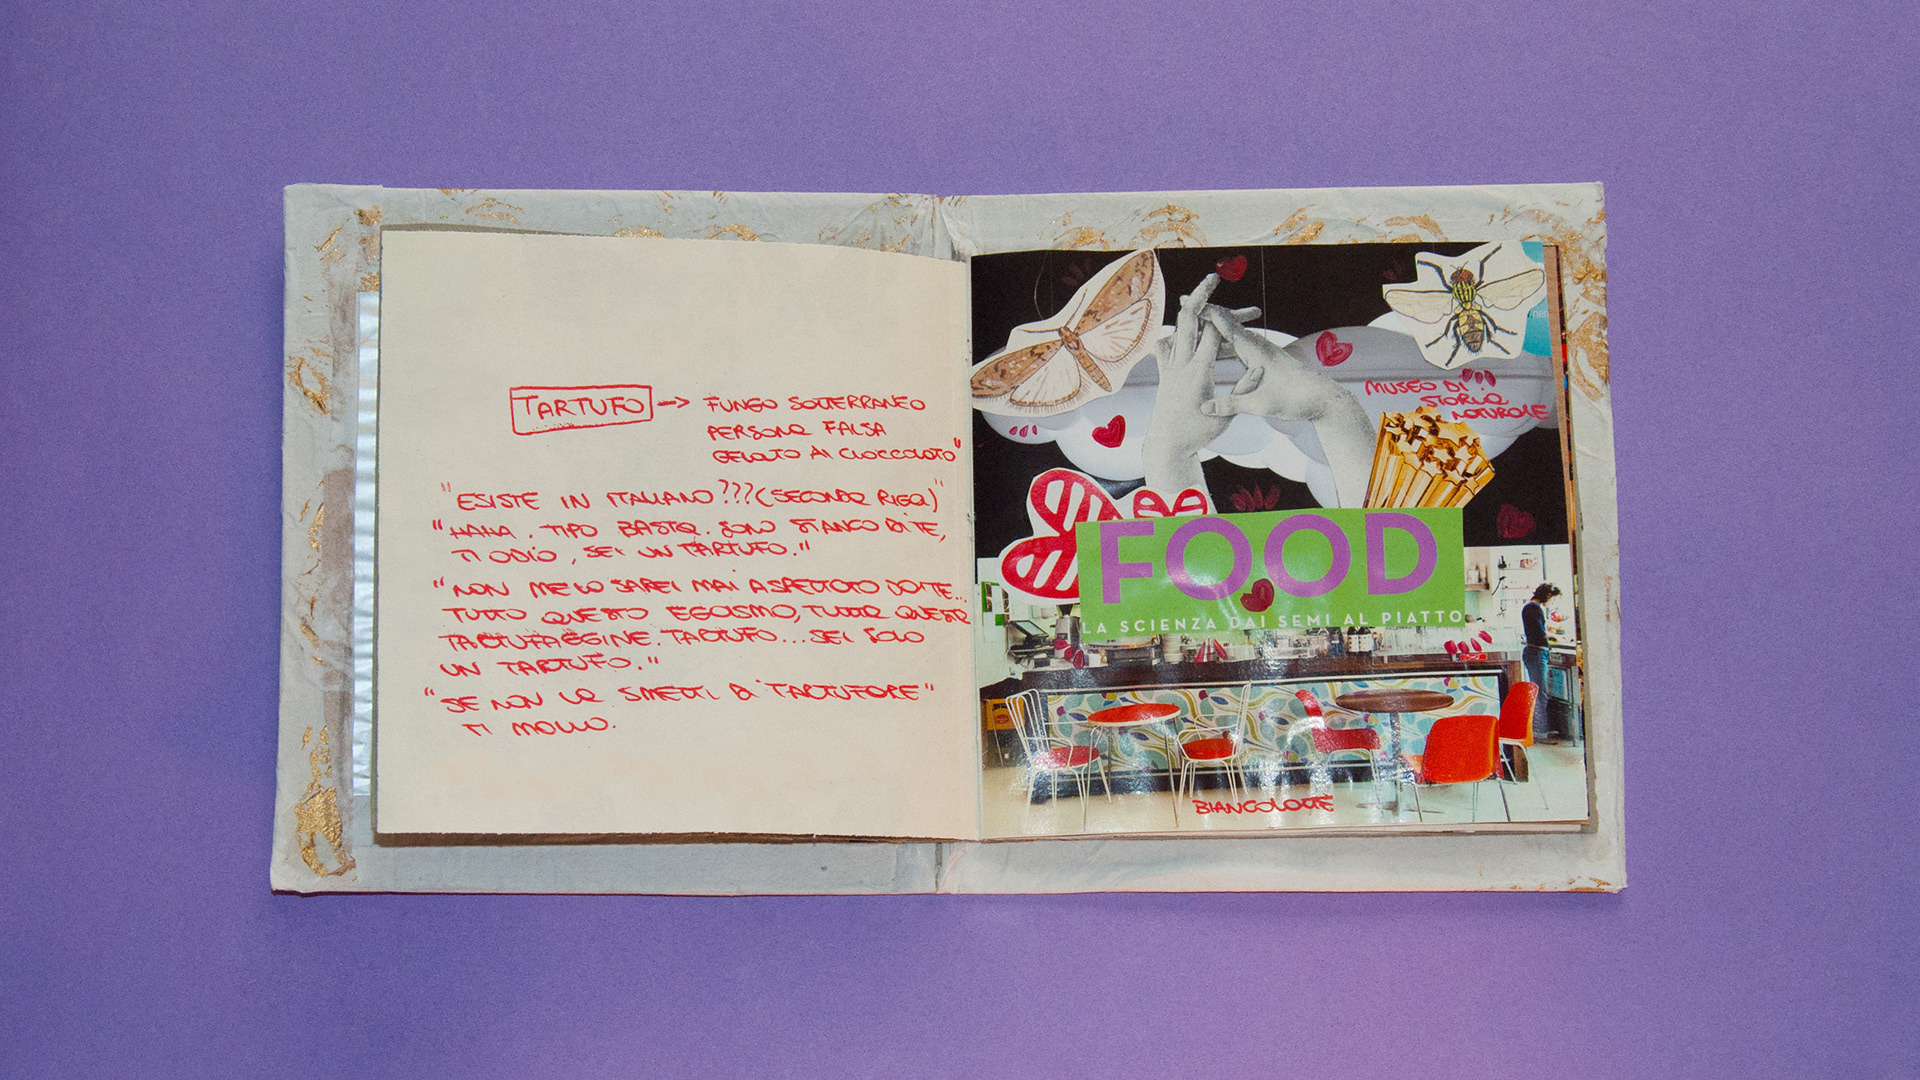 TARTUFO -> FUNGO SOTTERRANEO
PERSONA FALSA
GELATO AL CIOCCOLATO"
"ESISTE IN ITALIANO???(SECONDA RIGA)"
"HAHA. TIPO BASTA. SONO STANCO DI TE,
TI ODIO, SEI UN TARTUFO."
"NON ME LO SAREI MAI ASPETTATO DA TE...
TUTTO QUESTO EGOISMO, TUTTA QUESTA
TARTUFAGGINE. TARTUFO... SEI SOLO
UN TARTUFO."
"SE NON LA SMETTI DI TARTUFARE"
TI MOLLO.
MUSEO DI
STORIA
NATURALE
FOOD
LA SCIENZA DAI SEMI AL PIATTO
BIANCOLATTE